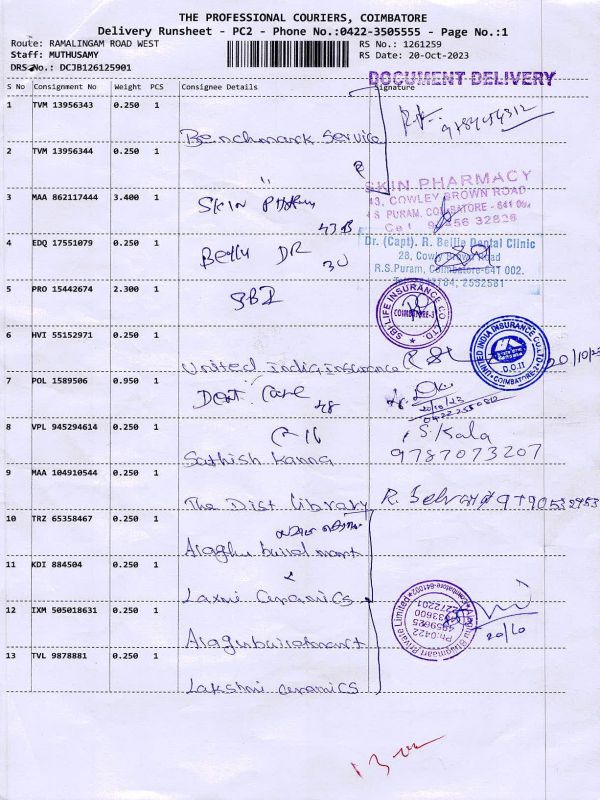 THE PROFESSIONAL COURIERS, COIMBATORE
Delivery Runsheet - PC2 - Phone No.:0422-3505555 - Page No.:1
Route: RAMALINGAM ROAD WEST
RS No.: 1261259
Staff: MUTHUSAMY
RS Date: 20-Oct-2023
DRS No.: DCJB126125901
DOCUMENT DELIVERY
S No Consignment No Weight PCS Consignee Details Signature
1 TVM 13956343 0.250 1
Benchmark Service
2 TVM 13956344 0.250 1
"
3 MAA 862117444 3.400 1
SKIN
SKIN PHARMACY
43, COWLEY BROWN ROAD
R.S. PURAM, COIMBATORE - 641 002
4 EDQ 17551079 0.250 1
DR
Dr. (Capt). R. Bellie Dental Clinic
28, Cowly Brown Road
R.S.Puram, Coimbatore-641 002.
2592581
5 PRO 15442674 2.300 1
SBI
SBI LIFE INSURANCE CO. LTD.
COIMBATORE-3
6 HVI 55152971 0.250 1
United India insurance
UNITED INDIA INSURANCE CO.LTD.
D.O.II
COIMBATORE-2
7 POL 1589506 0.950 1
Dent. Care
20/10/23
8 VPL 945294614 0.250 1
Sathish Kanna
S. Kala
9787073207
9 MAA 104910544 0.250 1
The Dist library
10 TRZ 65358467 0.250 1
Alaghu build mart
11 KDI 884504 0.250 1
Laxmi Ceramics
12 IXM 505018631 0.250 1
Alagubuildmart
20/10
13 TVL 9878881 0.250 1
Lakshmi ceramics